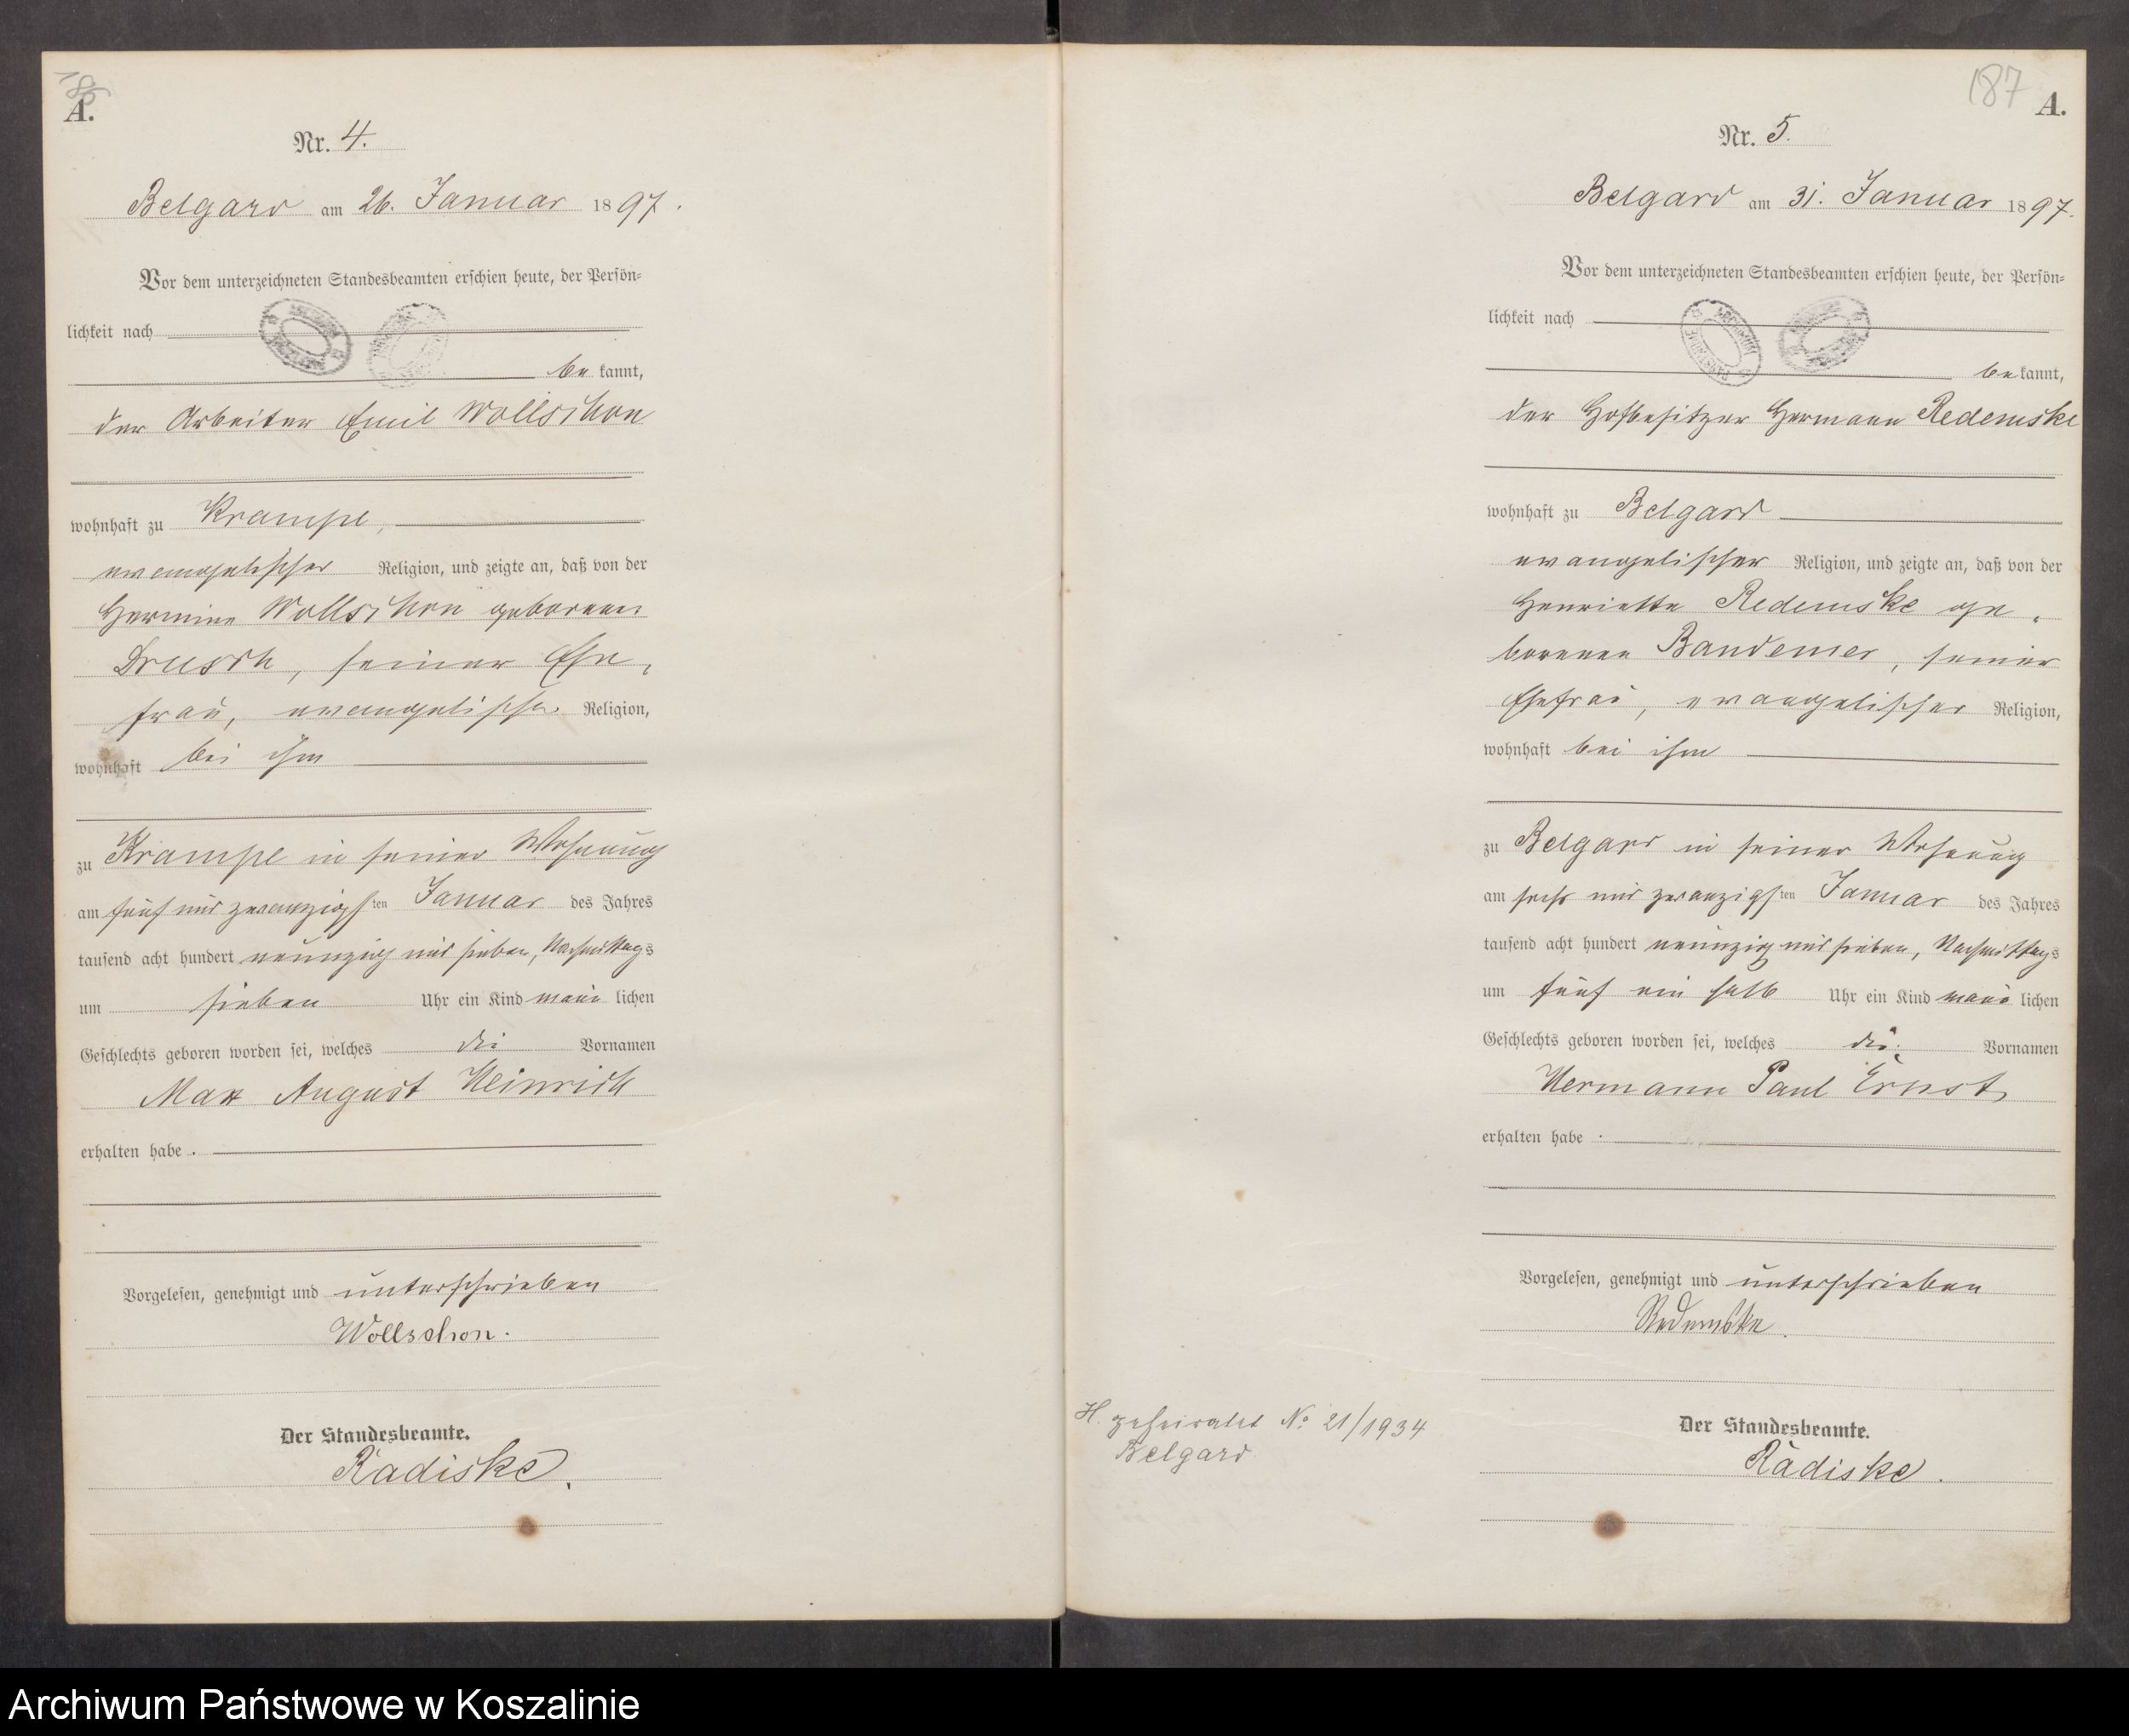 A.
Nr. 4.
Belgard am 26. Januar 1897.
Vor dem unterzeichneten Standesbeamten erschien heute, der Persön-
lichkeit nach
be kannt,
der Arbeiter Emil Wollschon
wohnhaft zu Krampe,
evangelischer Religion, und zeigte an, daß von der
Hermine Wollschon geborenen
Drusch, seiner Ehe-
frau, evangelischer Religion,
wohnhaft bei ihm
zu Krampe in seiner Wohnung
am fünf und zwanzigsten Januar des Jahres
tausend acht hundert neunzig und sieben, Nachmittags
um sieben Uhr ein Kind männlichen
Geschlechts geboren worden sei, welches die Vornamen
Max August Heinrich
erhalten habe.
Vorgelesen, genehmigt und unterschrieben
Wollschon.
Der Standesbeamte.
Radiske.
187 A.
Nr. 5.
Belgard am 31. Januar 1897.
Vor dem unterzeichneten Standesbeamten erschien heute, der Persön-
lichkeit nach
be kannt,
der Hofbesitzer Hermann Redemske
wohnhaft zu Belgard
evangelischer Religion, und zeigte an, daß von der
Henriette Redemske ge-
borenen Bandemer, seiner
Ehefrau, evangelischer Religion,
wohnhaft bei ihm
zu Belgard in seiner Wohnung
am sechs und zwanzigsten Januar des Jahres
tausend acht hundert neunzig und sieben, Nachmittags
um fünf ein halb Uhr ein Kind männlichen
Geschlechts geboren worden sei, welches die Vornamen
Hermann Paul Ernst
erhalten habe.
Vorgelesen, genehmigt und unterschrieben
Redemske.
H. geheiratet No 21/1934
Belgard
Der Standesbeamte.
Radiske.
Archiwum Państwowe w Koszalinie